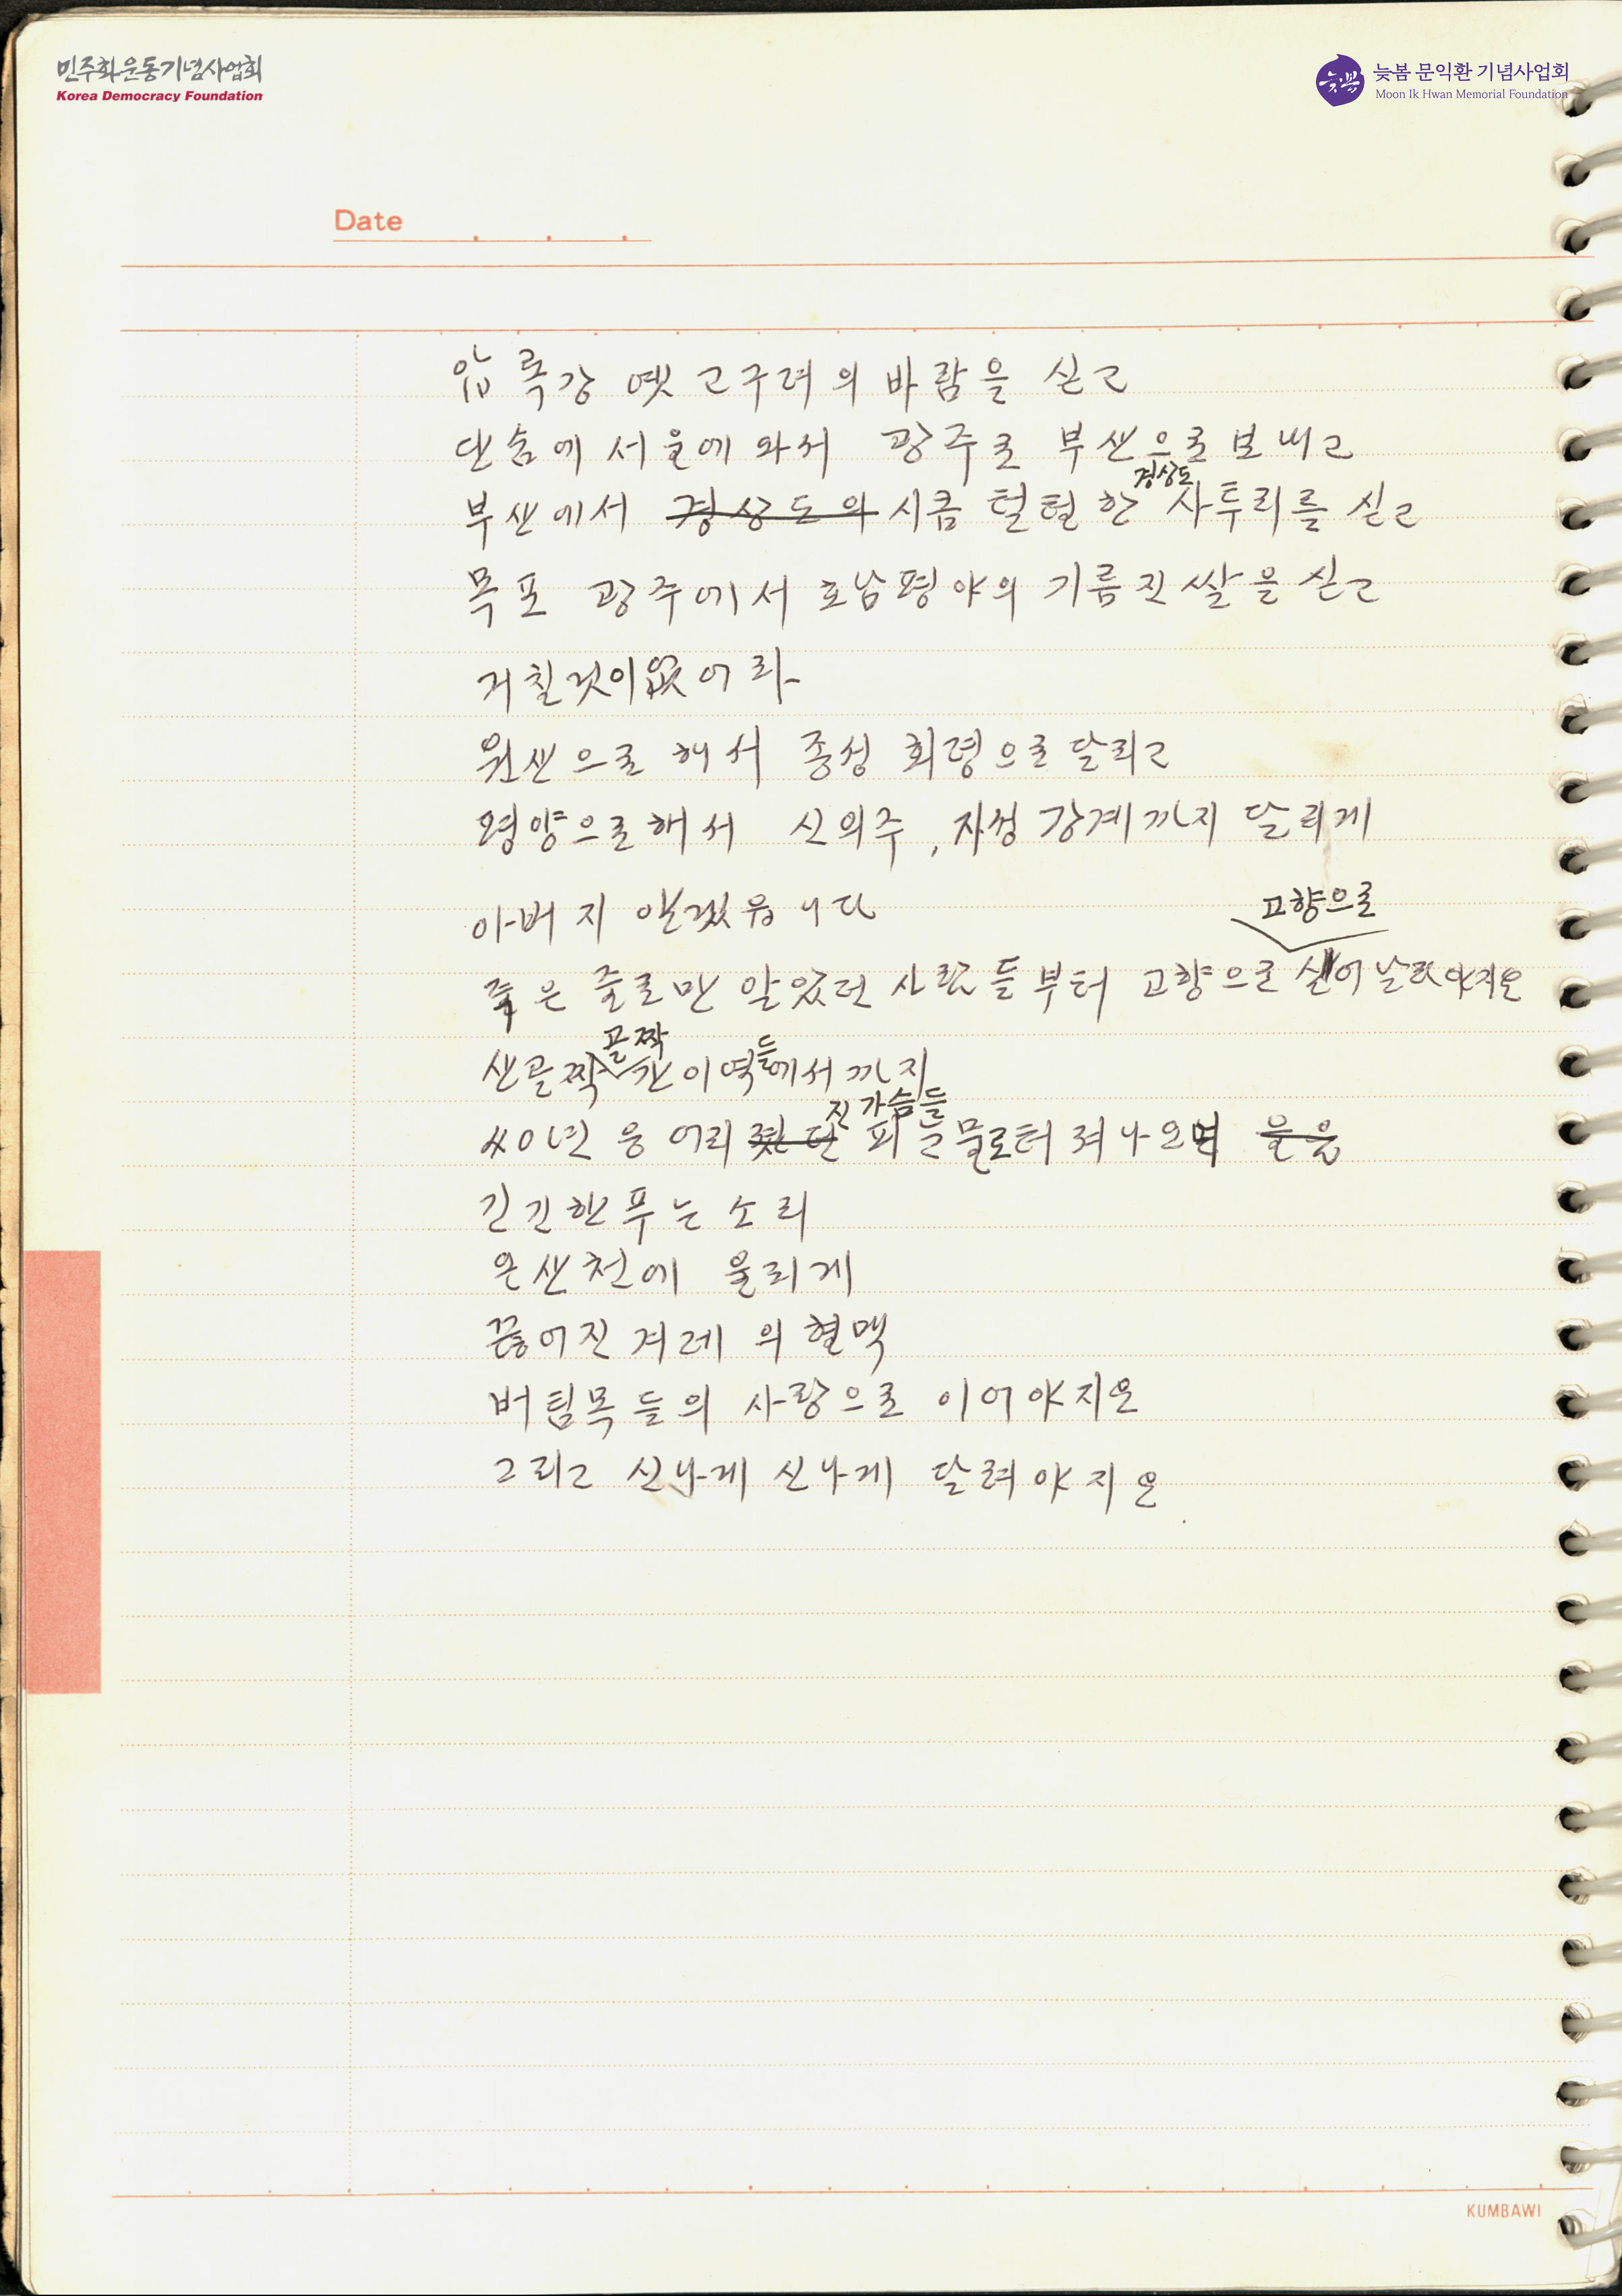 민주화운동기념사업회
Korea Democracy Foundation
늦봄
늦봄 문익환 기념사업회
Moon Ik Hwan Memorial Foundation
Date
압록강 옛 고구려의 바람을 싣고
단숨에 서울에 와서 광주로 부산으로 보내고
경상도
부산에서 경상도의 시큼 털털한 사투리를 싣고
목포 광주에서 호남평야의 기름진 쌀을 싣고
거칠것이없어라
원산으로 해서 종성 회령으로 달리고
평양으로해서 신의주, 자성 강계까지 달리게
아버지 안겠읍니다
고향으로
죽은 줄로만 알았던 사람들부터 고향으로 실어 날라야지요
골짝 들
산골짝 간이역에서까지
진가슴들
40년 응어리졌던 피눈물로터져나오며 울음
긴긴한푸는 소리
온산천에 울리게
끊어진 겨레의 혈맥
버팀목들의 사랑으로 이어야지요
그리고 신나게 신나게 달려야지요.
KUMBAWI